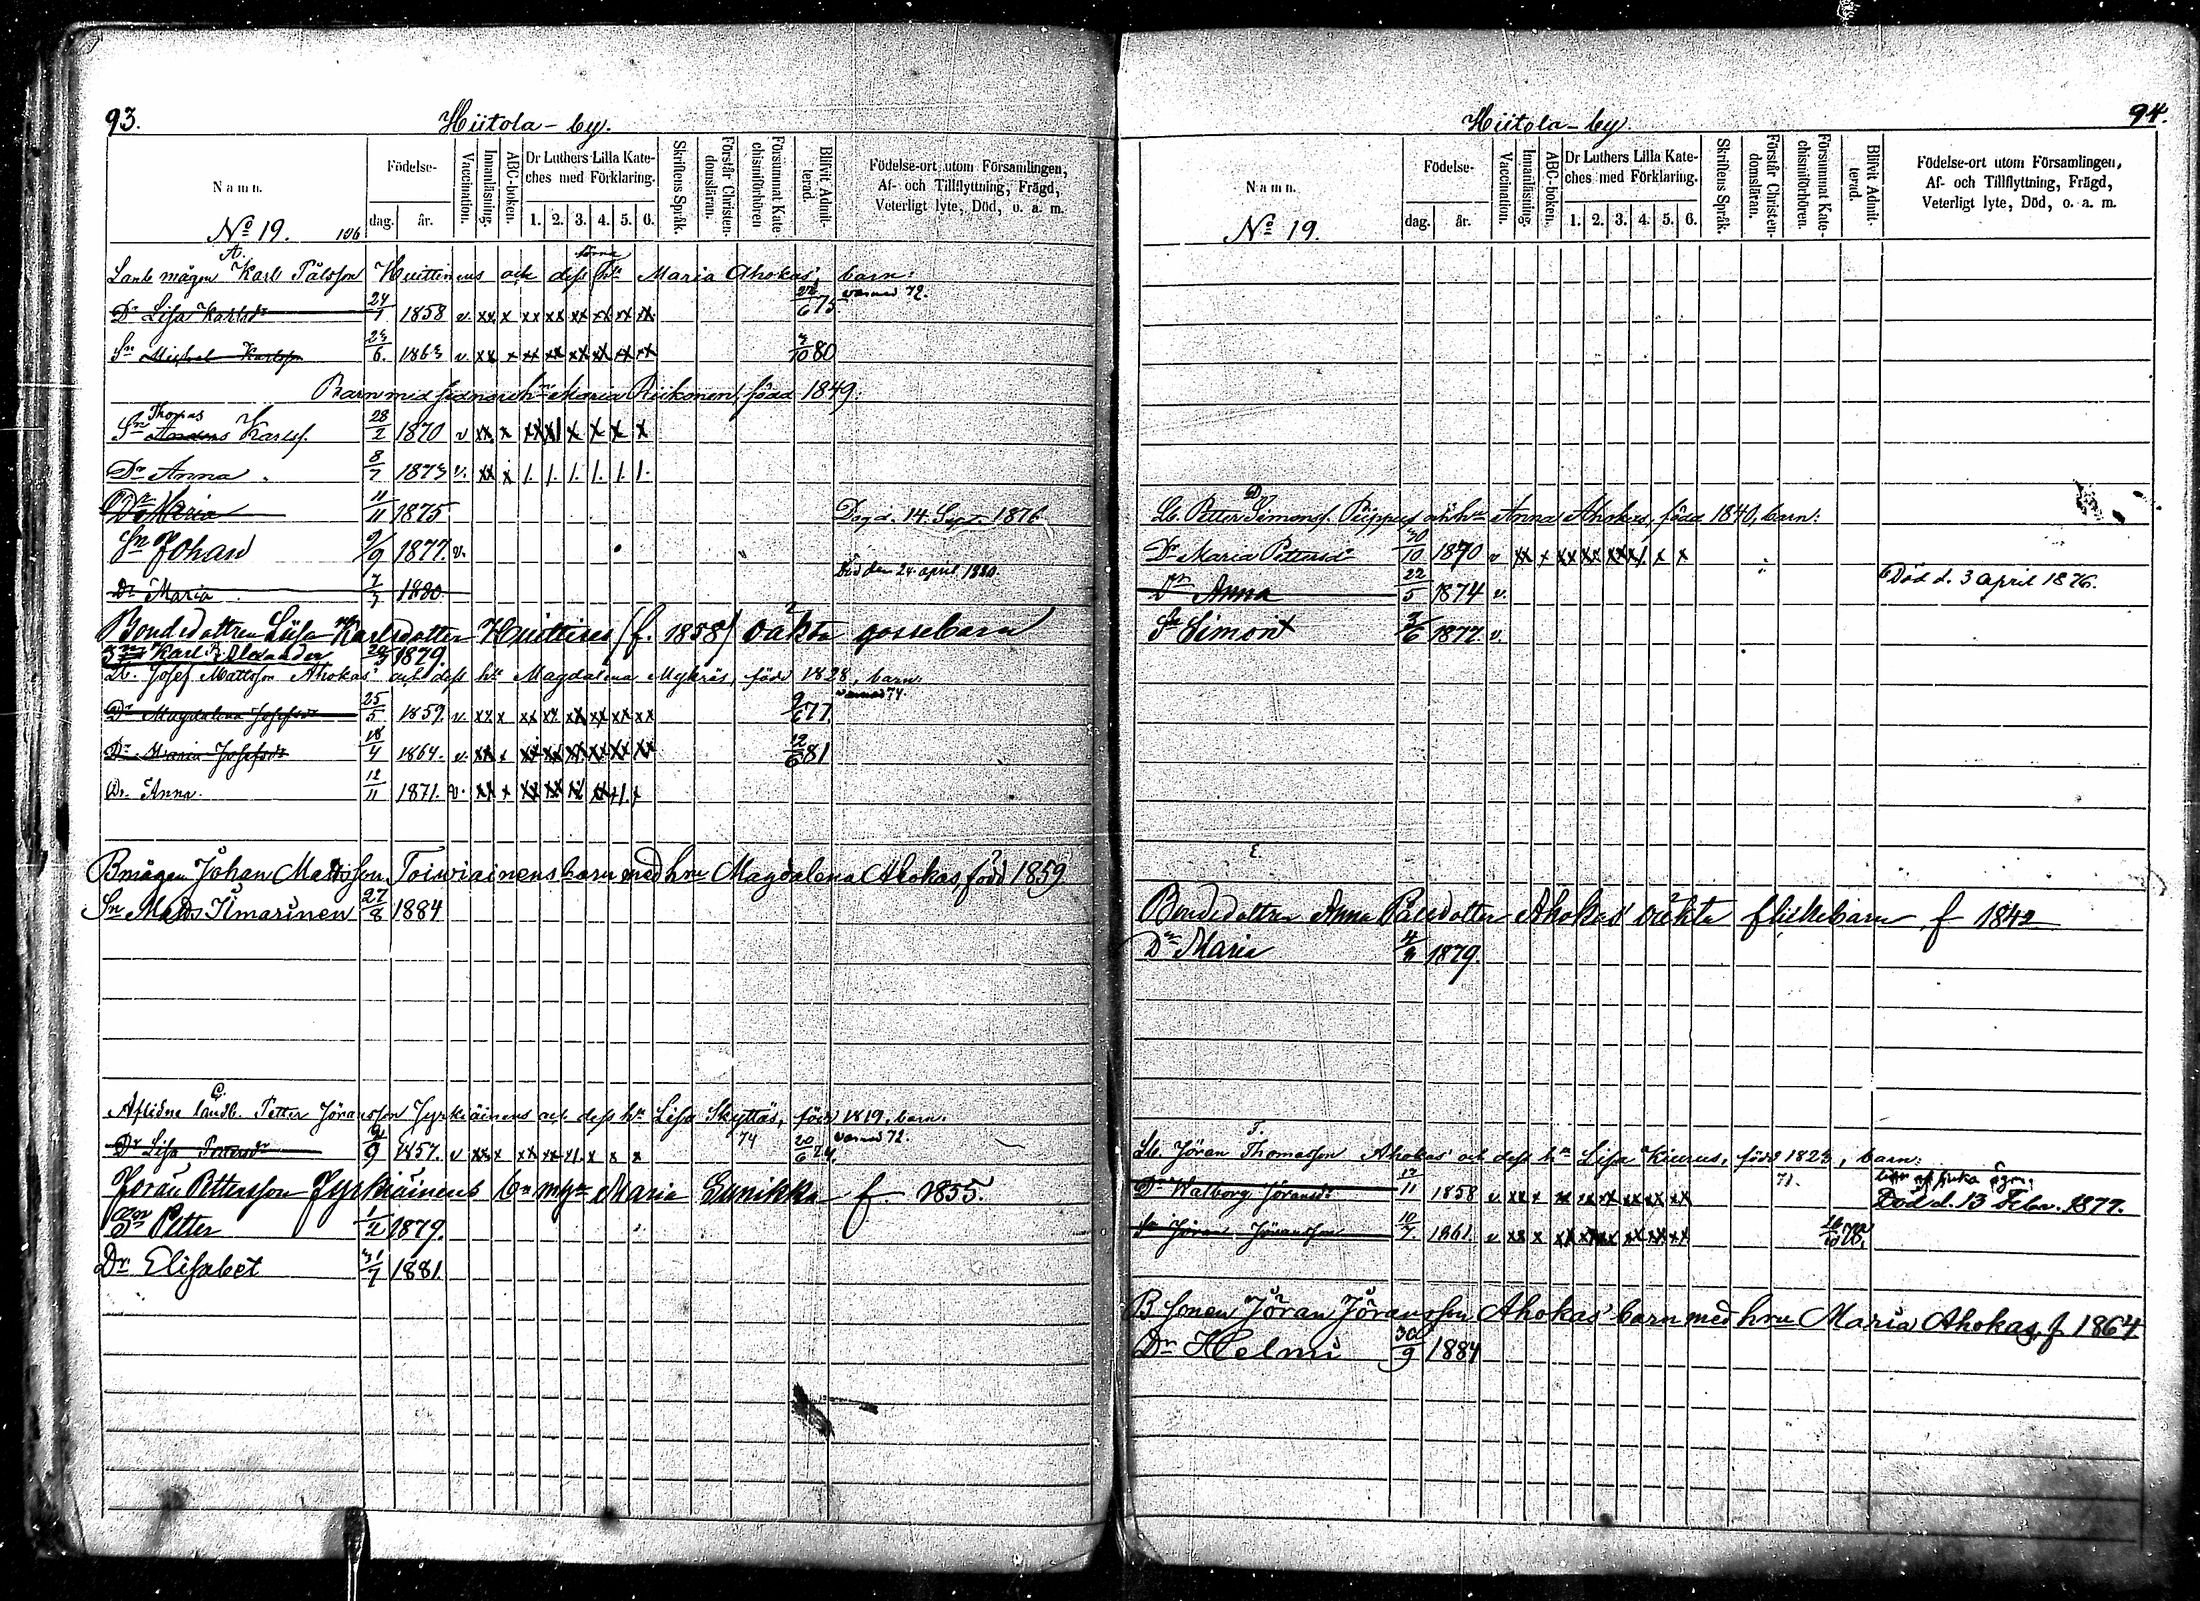 93.
Hiitola - by.
Namn.
Födelse-
dag.
år.
Vaccination.
Innanläsning.
ABC-boken.
Dr Luthers Lilla Kate-
ches med Förklaring.
1. 2. 3. 4. 5. 6.
Skriftens Språk.
Förstår Christen-
domsläran.
Försummat Kate-
chismiförhören
Blifvit Admit-
terad.
Födelse-ort utom Församlingen,
Af- och Tillflyttning, Frägd,
Veterligt lyte, Död, o. a. m.
No 19. 106
A.
förra
Lantb mågen Karl Pålsson Huittinens och dess hu Maria Ahokas' barn:
Dr Lisa Karlsdr 24/1 1858 v. xx x xx xx xx xx xx xx 22/6 75. 72.
Sn Michel Karlsson 23/6. 1863 v. xx x xx xx xx xx xx xx 3/10 80
Barn med sednare hn Maria Riikonen, född 1849.
Thomas
Sn Anders Karlsf. 28/2 1870 v xx x xx x x x x x
Dr Anna 8/7 1873 v. xx x 1. 1. 1. 1. 1. 1.
Dr Maria 11/11 1875 Dog d. 14 Sept. 1876
Sn Johan 9/9 1877. v.
Dr Maria 7/7 1880 Död den 24 april 1880.
Bondedottren Liisa Karlsdotter Huittises (f. 1858) oäkta gossebarn
Sn Karl Alexander 1879.
Lb. Josef Mattsson Ahokas' och dess hu Magdalena Mykräs, född 1828, barn:
Dr Magdalena Josefsdr 25/5 1859. v. xx x xx xx xx xx xx xx 9/6 77. 74.
Dr Maria Josefsdr 18/4 1864. v. xx x xx xx xx xx xx xx 12/6 81
Dr. Anna. 12/11 1871. v. xx x xx xx
Bmågen Johan Mattsson Toiwiainens barn med hru Magdalena Ahokas, född 1859
Sn Matts Ilmarinen 27/8 1884
C.
Aflidne landb. Petter Jöransson Jyrkiäinens och dess hu Lisa Skyttäs, född 1819, barn:
Dr Lisa Pettersdr 1857. v xx x xx xx x x x 74 20/6 72.
Jöran Pettersson Jyrkiäinens Maria Eunikka f. 1855.
Sn Petter 1/2 1879.
Dr Elisabet 1881.
94.
Hiitola - by.
Namn.
Födelse-
dag.
år.
Vaccination.
Innanläsning.
ABC-boken.
Dr Luthers Lilla Kate-
ches med Förklaring.
1. 2. 3. 4. 5. 6.
Skriftens Språk.
Förstår Christen-
domsläran.
Försummat Kate-
chismiförhören.
Blifvit Admit-
terad.
Födelse-ort utom Församlingen,
Af- och Tillflyttning, Frägd,
Veterligt lyte, Död, o. a. m.
No 19.
D.
Lb. Petter Simonsf. Piippus och hu Anna Ahokas, född 1840, barn:
Dr Maria Pettersdr 30/10 1870 v xx x xx xx xx x x x
Dr Anna 22/5 1874 v. Död d. 3 april 1876.
Sn Simon 3/6 1877. v.
E.
Bondedottren Anna Pålsdotter Ahokas' oäkta flickebarn f 1842
Dr Maria 1879.
F.
Lb. Jöran Thomasson Ahokas' och dess hu Lisa Kiurus, född 1823, barn:
Dr Walborg Jöransdr 13/11 1858 v xx x xx xx xx xx xx xx 71.
Död d. 13 Febr. 1877.
Sn Jöran Jöransson 10/7. 1861. v xx x xx xx xx xx xx xx
B sonen Jöran Jöransson Ahokas' barn med hru Maria Ahokas, f 1864
Dr Helmi 30/9 1884